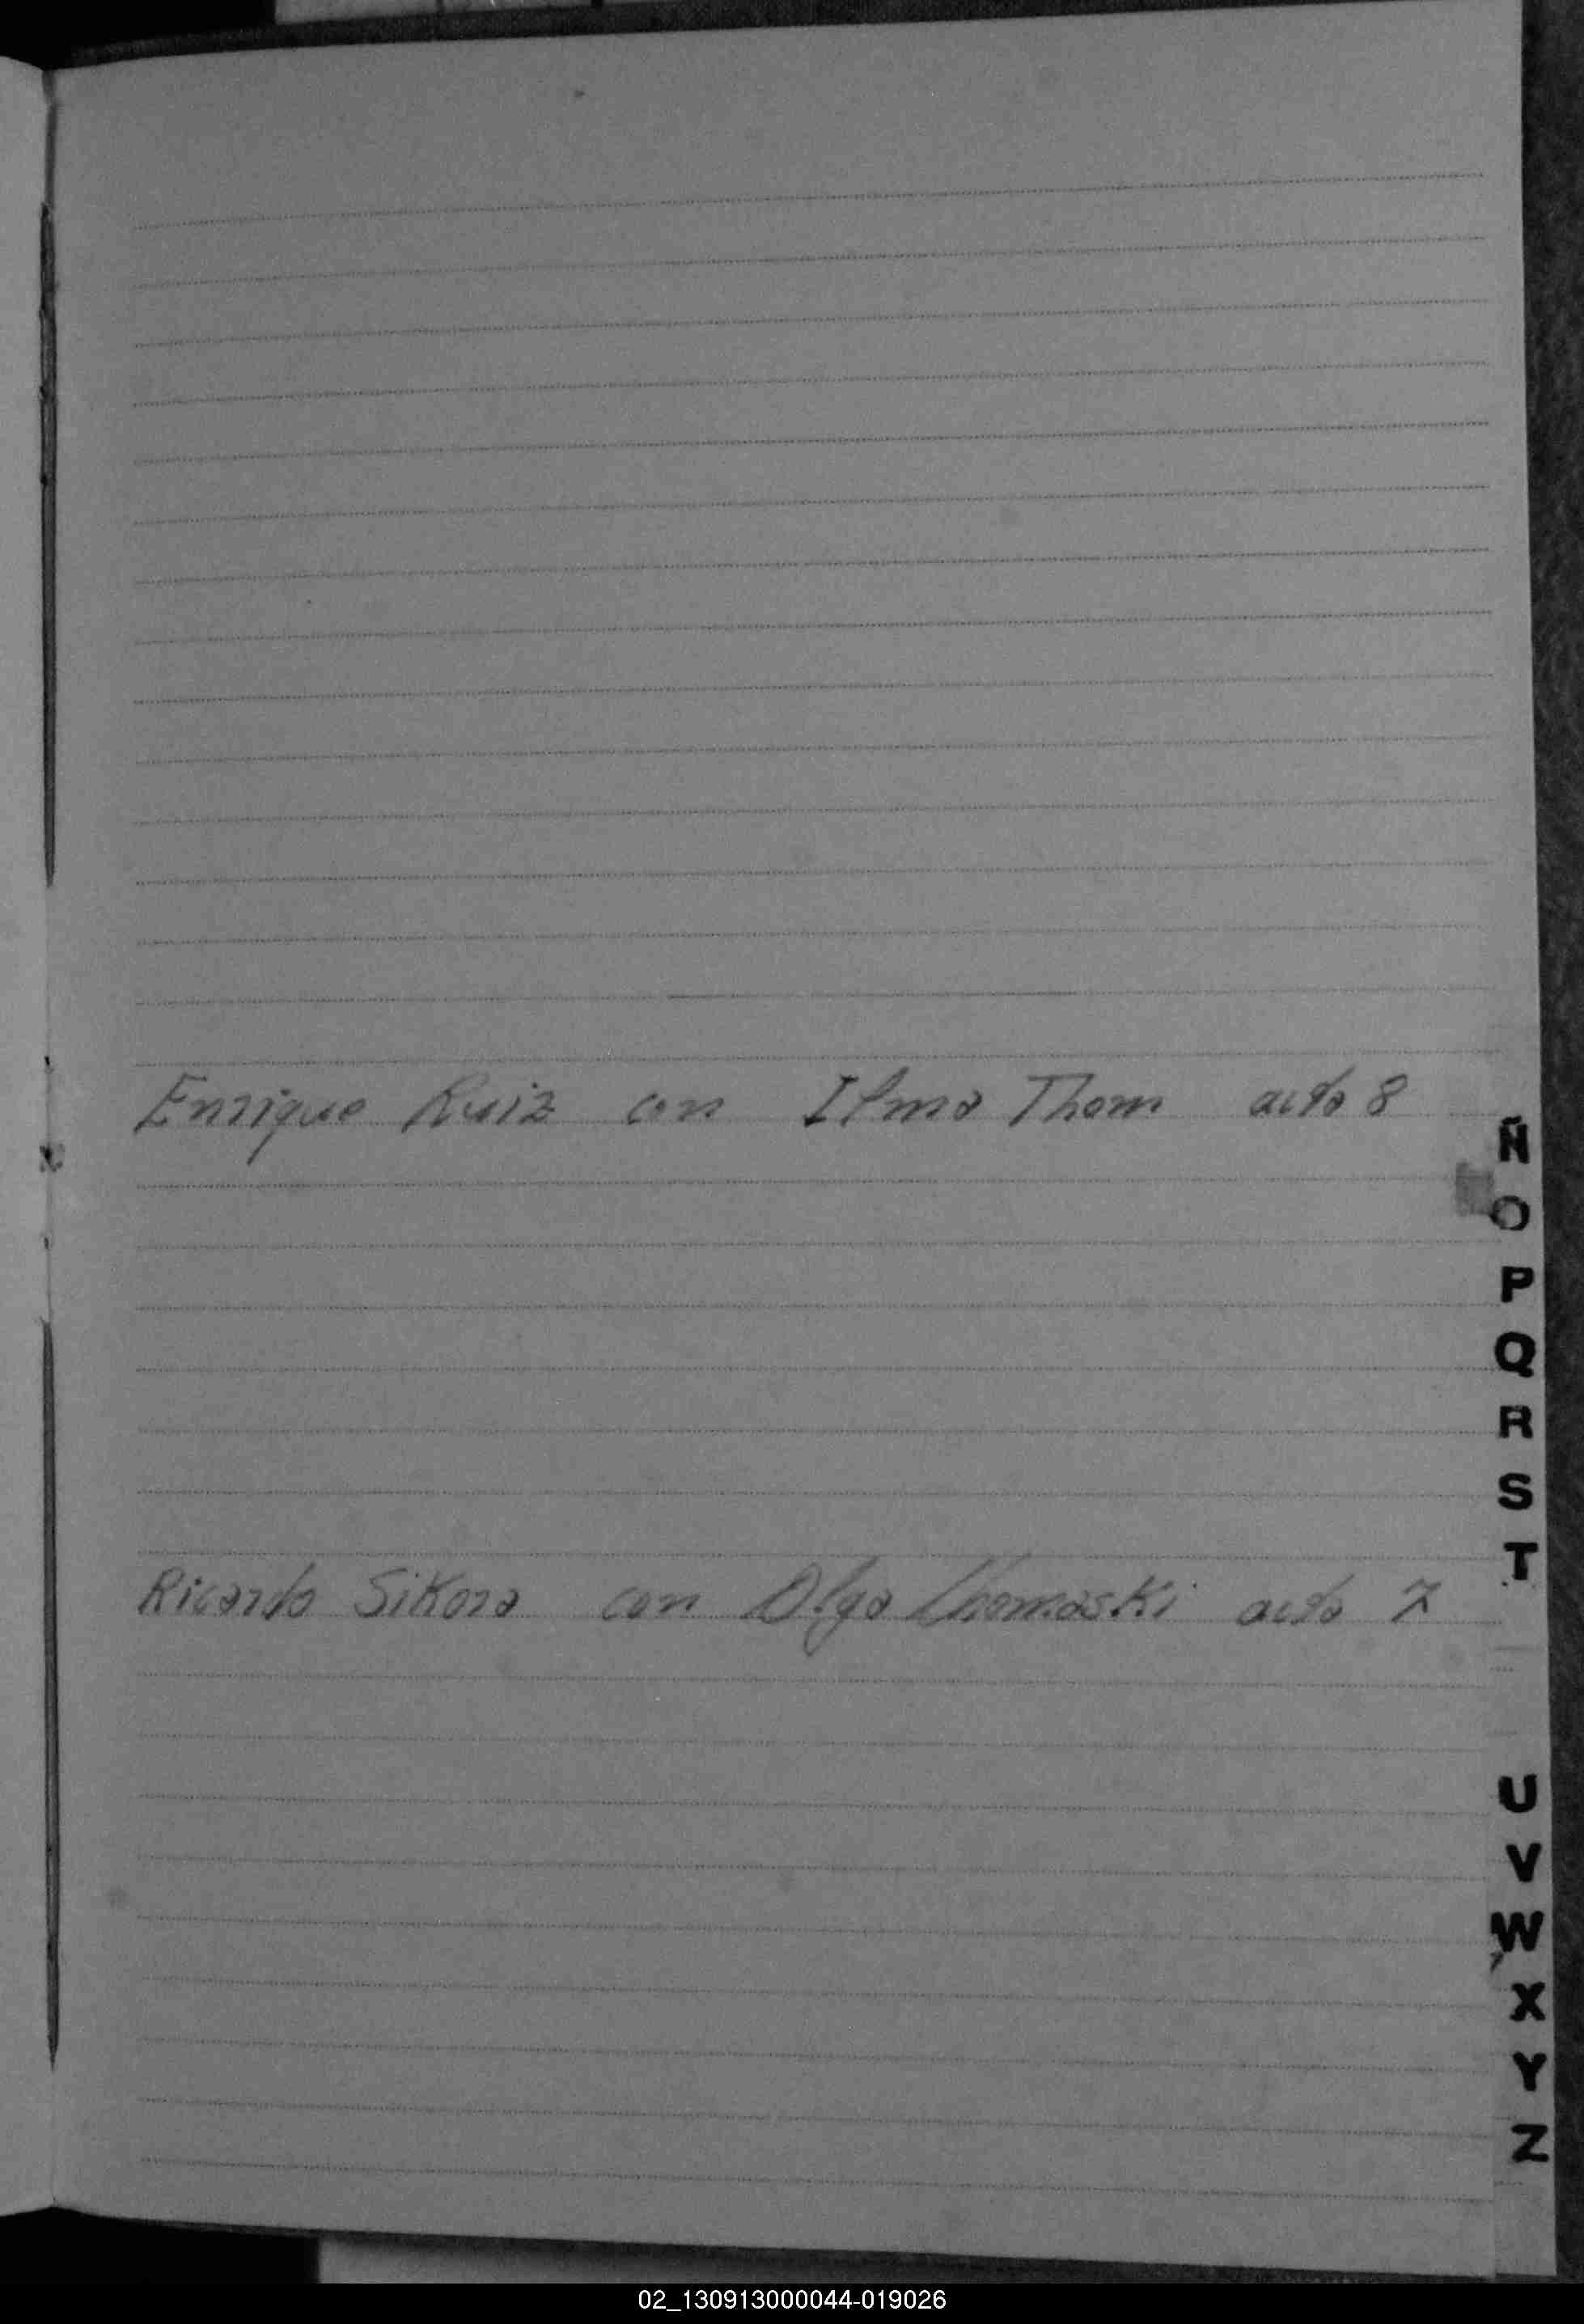 Enrique Ruiz con Ilma Thom acta 8
Ñ
O
P
Q
R
S
Ricardo Sikora con Olga Chomaski acta 7
T
U
V
W
X
Y
Z
02_130913000044-019026